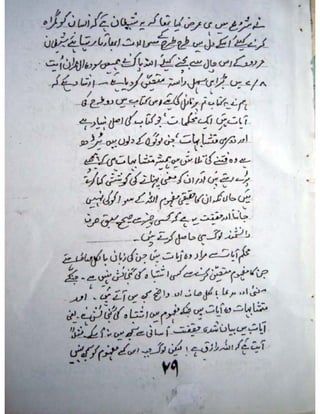 نے شروع میں ہی عرض کیا تھا کہ یہ شیطان ہے کہ انسان کو گمراہ
کرنے کیلئے اسکے دل میں طرح طرح کے سوالات ابھارتا رہتا ہے شیطان
مردود کے اس جال سے بچنے کیلئے اللہ پاک نے ہمیں سورہ ال عمران آیت
میں بڑا ہی سہل راستہ متعین کر دیا ہے۔ ارشاد ہے کہ
ہم نے یہ کتاب تم پر نازل کی ہے اس کتاب میں دو طرح کی
آیات ہیں ایک محکمات جو کتاب کی اصل بنیاد ہے
اور دوسری متشابہات جن لوگوں کے دلوں میں ٹیڑھ
ہے وہ فتنے کی تلاش میں ہمیشہ متشابہات ہی کے پیچھے
پڑے رہتے ہیں اور ان کو معنی پہنانے کی کوشش کیا کرتے
ہیں حالانکہ ان کا حقیقی مفہوم اللہ کے سوا کوئی نہیں
جانتا اور حقیقت یہ ہے کہ کسی چیز سے صحیح سبق صرف
دانشمند لوگ ہی حاصل کرتے ہیں۔
محکم آیات سے مراد وہ آیات ہیں جن کی زبان بالکل صاف ہے
جن کا مفہوم متعین کرنے سے کسی اشتباہ کی گنجائش نہیں ہے۔ جسکے
معنی اور مدعا بالکل صاف اور واضح سمجھ میں آتے ہیں۔ اور
متشابہات وہ آیات ہیں جنکے مفہوم میں اشتباہ کی گنجائش ہے۔ یعنی
آیات میں بیان شدہ حقیقت آسانی سے سمجھ میں نہ آ سکے۔ مثلاً
آیت ہے کہ اللہ رازق ہے! لیکن لوگ جب اس کے مفہوم کو سمجھ نہیں
۷۹